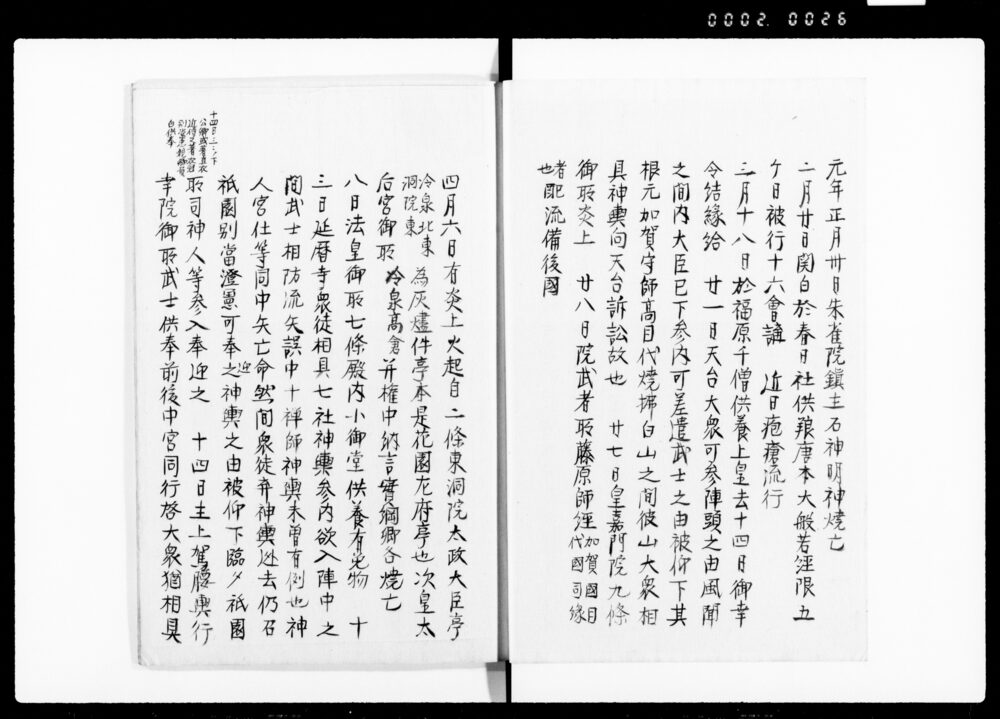 0002 0026
元年正月卅日朱雀院鎮主石神明神焼亡
二月廿日関白於春日社供養唐本大般若經限五
ケ日被行十六會講 近日疱瘡流行
三月十八日於福原千僧供養上皇去十四日御幸
令結縁給 廿一日天台大衆可参陣頭之由風聞
之間内大臣已下参内可差遣武士之由被仰下其
根元加賀守師髙目代焼拂白山之間彼山大衆相
具神輿向天台訴訟故也 廿七日皇嘉門院九條
御所炎上 廿八日院武者所藤原師經加賀國目
代國司縁
者也配流備後國
四月六日有炎上火起自二條東洞院太政大臣亭
冷泉北東
洞院東 為灰燼件亭本是花園左府亭也次皇太
后宮御所 冷泉髙倉 并權中納言實綱卿各焼亡
八日法皇御所七條殿内小御堂供養有 物 十
三日延暦寺衆徒相具七社神輿参内欲入陣中之
間武士相防流矢誤中十禅師神輿未曽有例也神
人宮仕等同中矢亡命然間衆徒弃神輿逃去仍召
祇園別當澄憲可奉迎之神輿之由被仰下臨夕祇園
所司神人等参入奉迎之 十四日主上駕腰輿行
幸院御所武士供奉前後中宮同行啓大衆猶相具
十四日
公卿或着直衣
近将又着衣冠
供奉